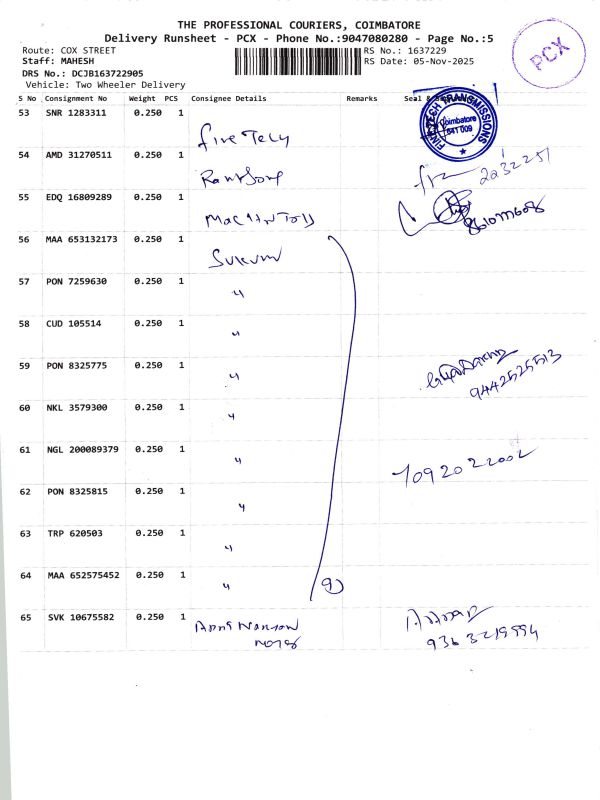 THE PROFESSIONAL COURIERS, COIMBATORE
Delivery Runsheet - PCX - Phone No.:9047080280 - Page No.:5
Route: COX STREET
RS No.: 1637229
Staff: MAHESH
RS Date: 05-Nov-2025
DRS No.: DCJB163722905
Vehicle: Two Wheeler Delivery
PCX
S No Consignment No Weight PCS Consignee Details Remarks Seal &
53 SNR 1283311 0.250 1
FINETECH TRANSMISSIONS
Coimbatore
641 009
54 AMD 31270511 0.250 1
55 EDQ 16809289 0.250 1
56 MAA 653132173 0.250 1
57 PON 7259630 0.250 1 "
58 CUD 105514 0.250 1 "
59 PON 8325775 0.250 1 "
9442525513
60 NKL 3579300 0.250 1 "
61 NGL 200089379 0.250 1 "
62 PON 8325815 0.250 1 "
63 TRP 620503 0.250 1 "
64 MAA 652575452 0.250 1 " 9
65 SVK 10675582 0.250 1